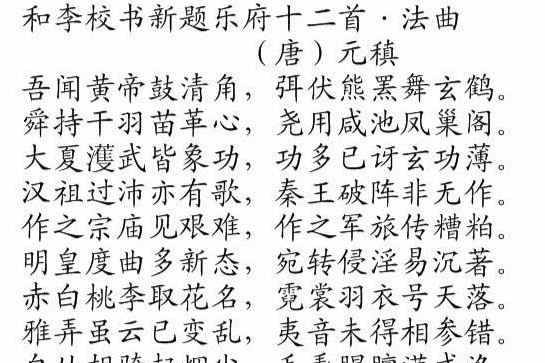 和李校书新题乐府十二首·法曲
（唐）元稹
吾闻黄帝鼓清角，弭伏熊罴舞玄鹤。
舜持干羽苗革心，尧用咸池凤巢阁。
大夏濩武皆象功，功多已讶玄功薄。
汉祖过沛亦有歌，秦王破阵非无作。
作之宗庙见艰难，作之军旅传糟粕。
明皇度曲多新态，宛转侵淫易沉著。
赤白桃李取花名，霓裳羽衣号天落。
雅弄虽云已变乱，夷音未得相参错。